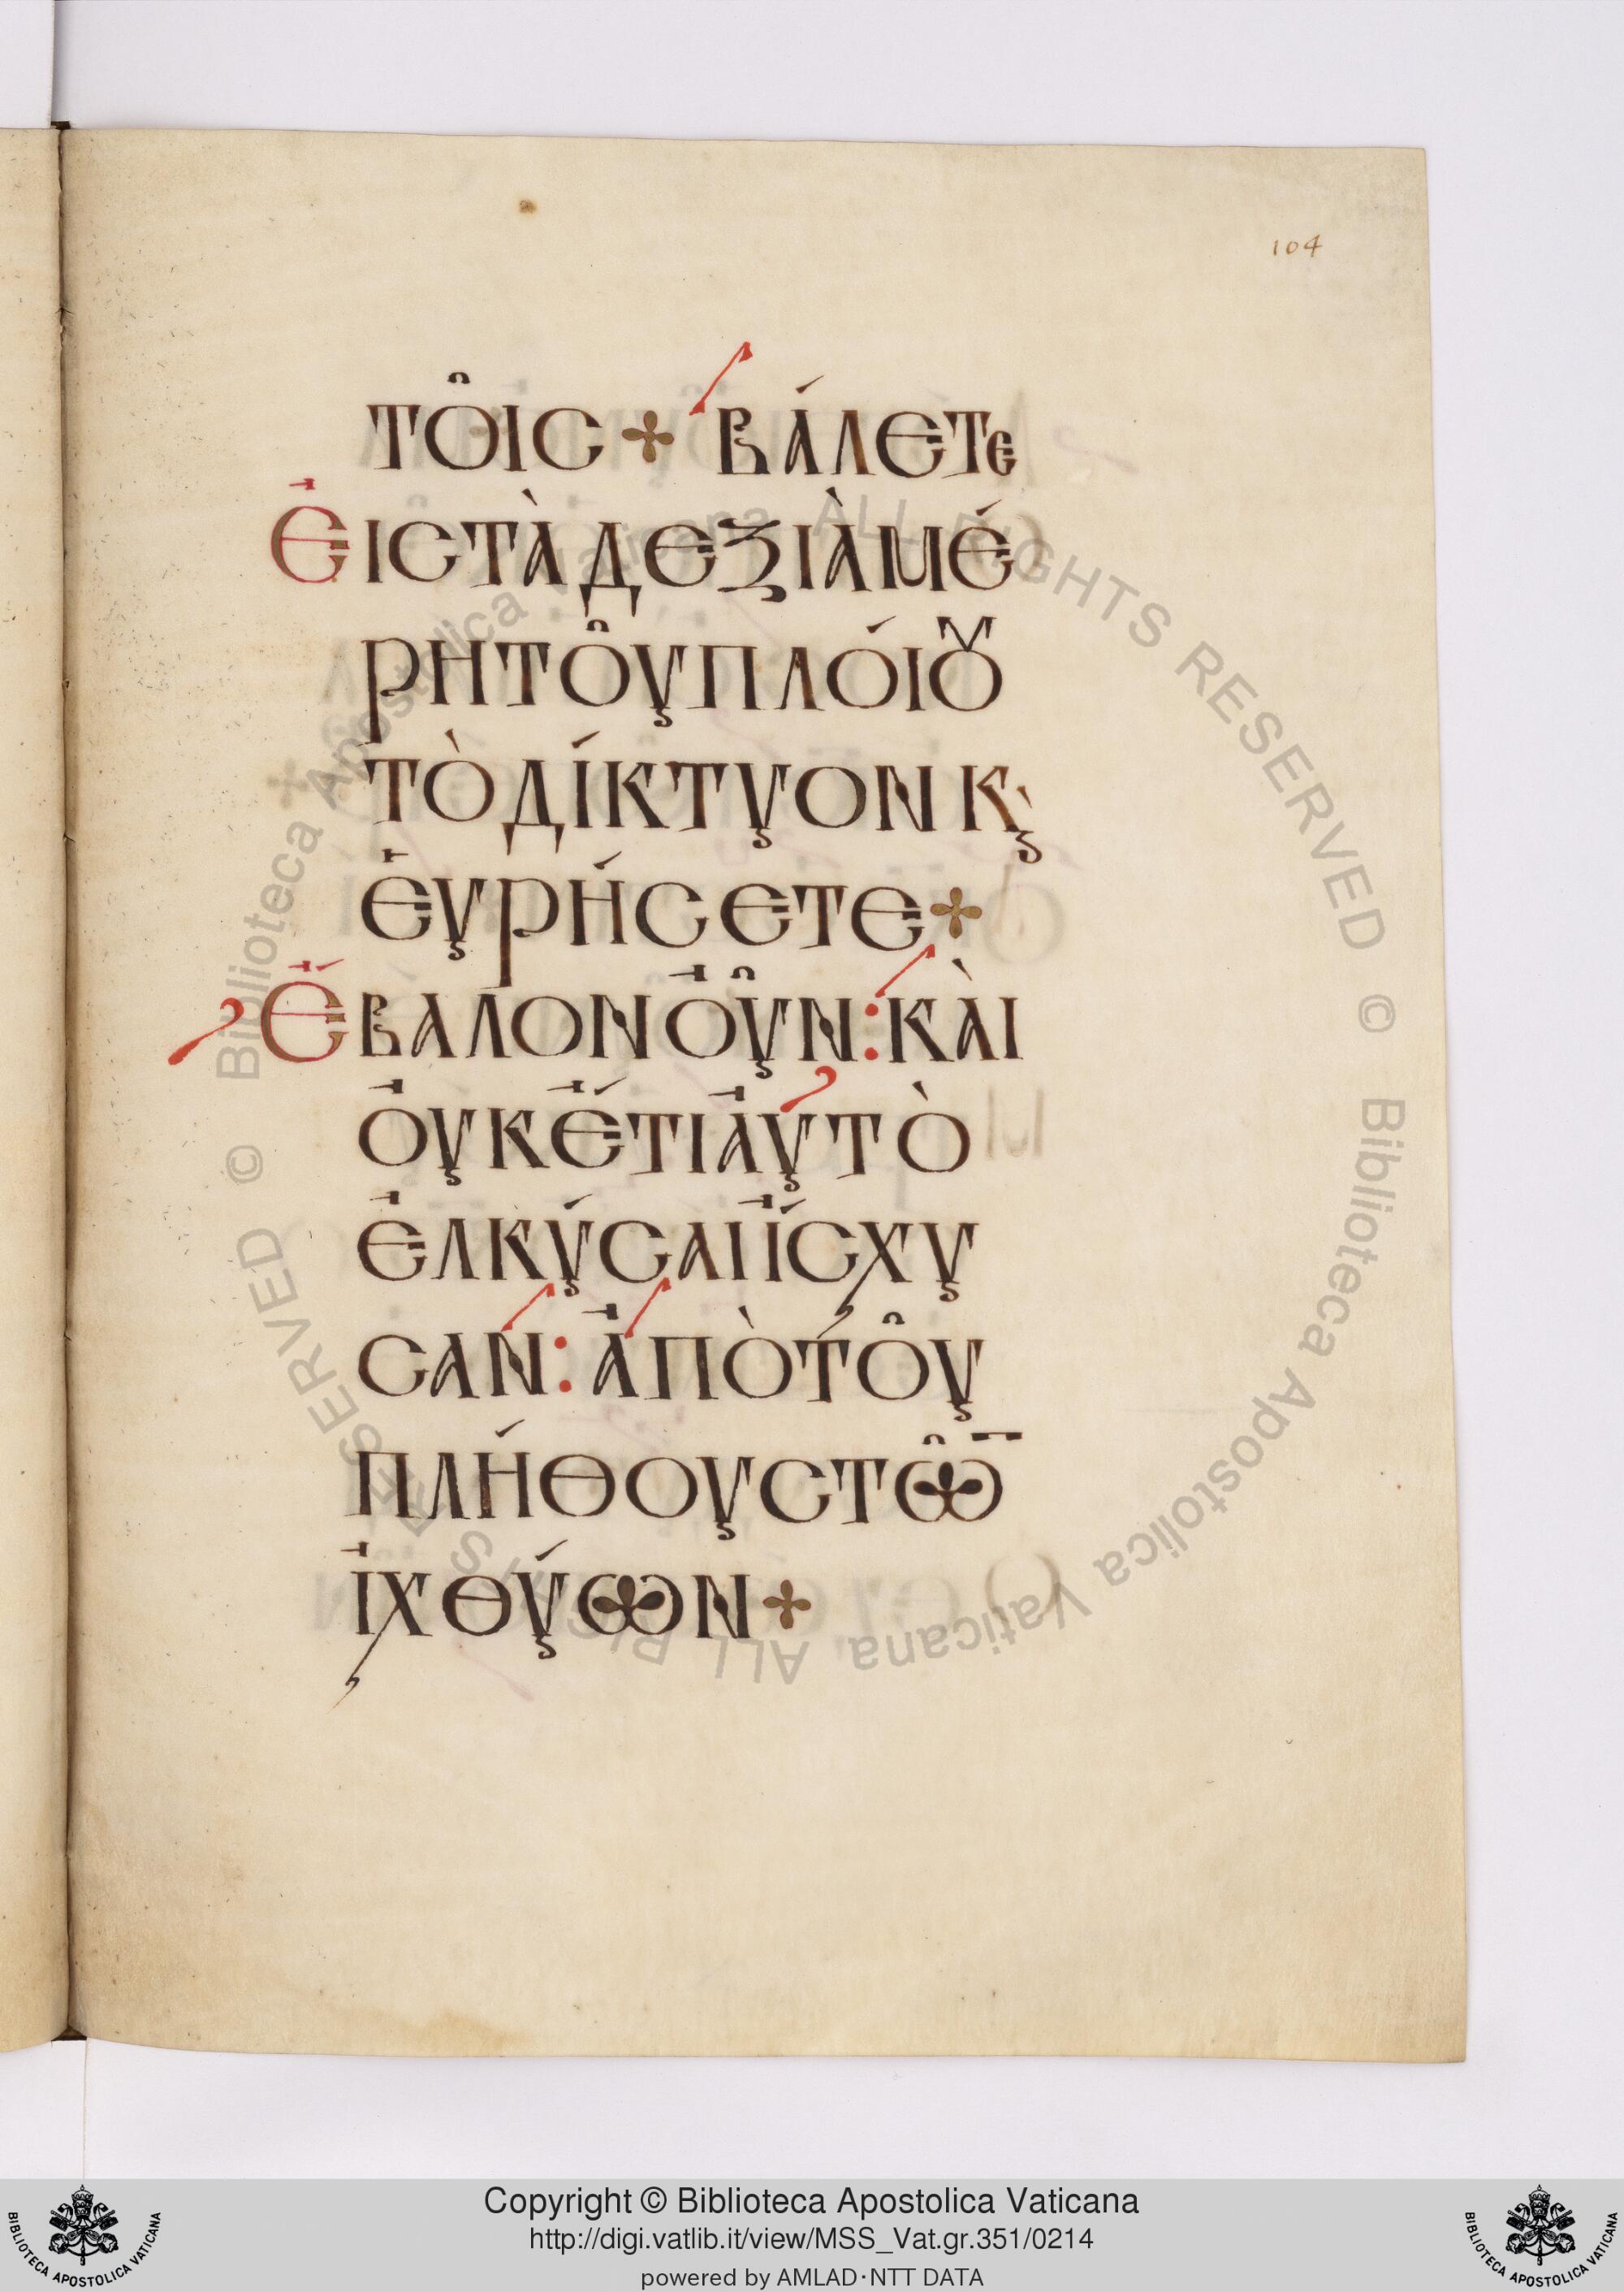 104
ΤΟ͂ΙC + ΒΆΛΕΤΕ
ἘΙCΤᾺΔΕΞΙᾺΜΈ
ΡΗΤΟ͂ΥΠΛΌΙȢ
ΤῸΔΊΚΤΥΟΝ Κ̀ς
ἘΥΡΉCΕΤΕ +
ἜΒΑΛΟΝὈΥ͂Ν : ΚᾺΙ
ὈΥΚἜΤΙἈΥΤῸ
ἘΛΚΎCΑΙἼCΧΥ
CΑΝ : ἈΠῸΤΟ͂Υ
ΠΛΉΘΟΥCΤΩ͂̅
ἸΧΘΎΩΝ +
© Biblioteca Apostolica Vaticana ALL RIGHTS RESERVED
© Biblioteca Apostolica Vaticana ALL RIGHTS RESERVED
Copyright © Biblioteca Apostolica Vaticana
http://digi.vatlib.it/view/MSS_Vat.gr.351/0214
powered by AMLAD·NTT DATA
BIBLIOTECA APOSTOLICA VATICANA
BIBLIOTECA APOSTOLICA VATICANA